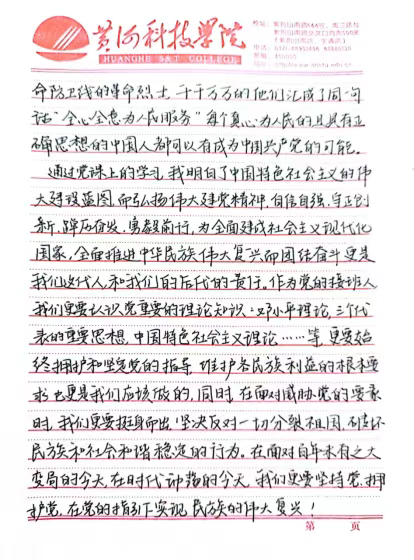 黄河科技学院
HUANGHE S&T COLLEGE
命防卫线的革命烈士,千千万万的他们汇成了同一句
话“全心全意为人民服务”每个真心为人民的且具有正
确思想的中国人都可以有成为中国共产党的可能。
通过党课上的学习,我明白了中国特色社会主义的伟
大建设蓝图,而弘扬伟大建党精神,自信自强,守正创
新,踔厉奋发,勇毅前行,为全面建成社会主义现代化
国家,全面推进中华民族伟大复兴而团结奋斗更是
我们这代人,和我们的后代的责任。作为党的接班人
我们更要认识党重要的理论知识:邓小平理论,三个代
表的重要思想,中国特色社会主义理论……等,更要始
终拥护和坚定党的指导,维护各民族利益的根本要
求也更是我们应该做的,同时,在面对威胁党的要素
时,我们更要挺身而出,坚决反对一切分裂祖国,破坏
民族和社会和谐稳定的行为。在面对百年未有之大
变局的今天,在时代动荡的今天,我们更要坚持党,拥
护党,在党的指引下实现民族的伟大复兴!
第 页